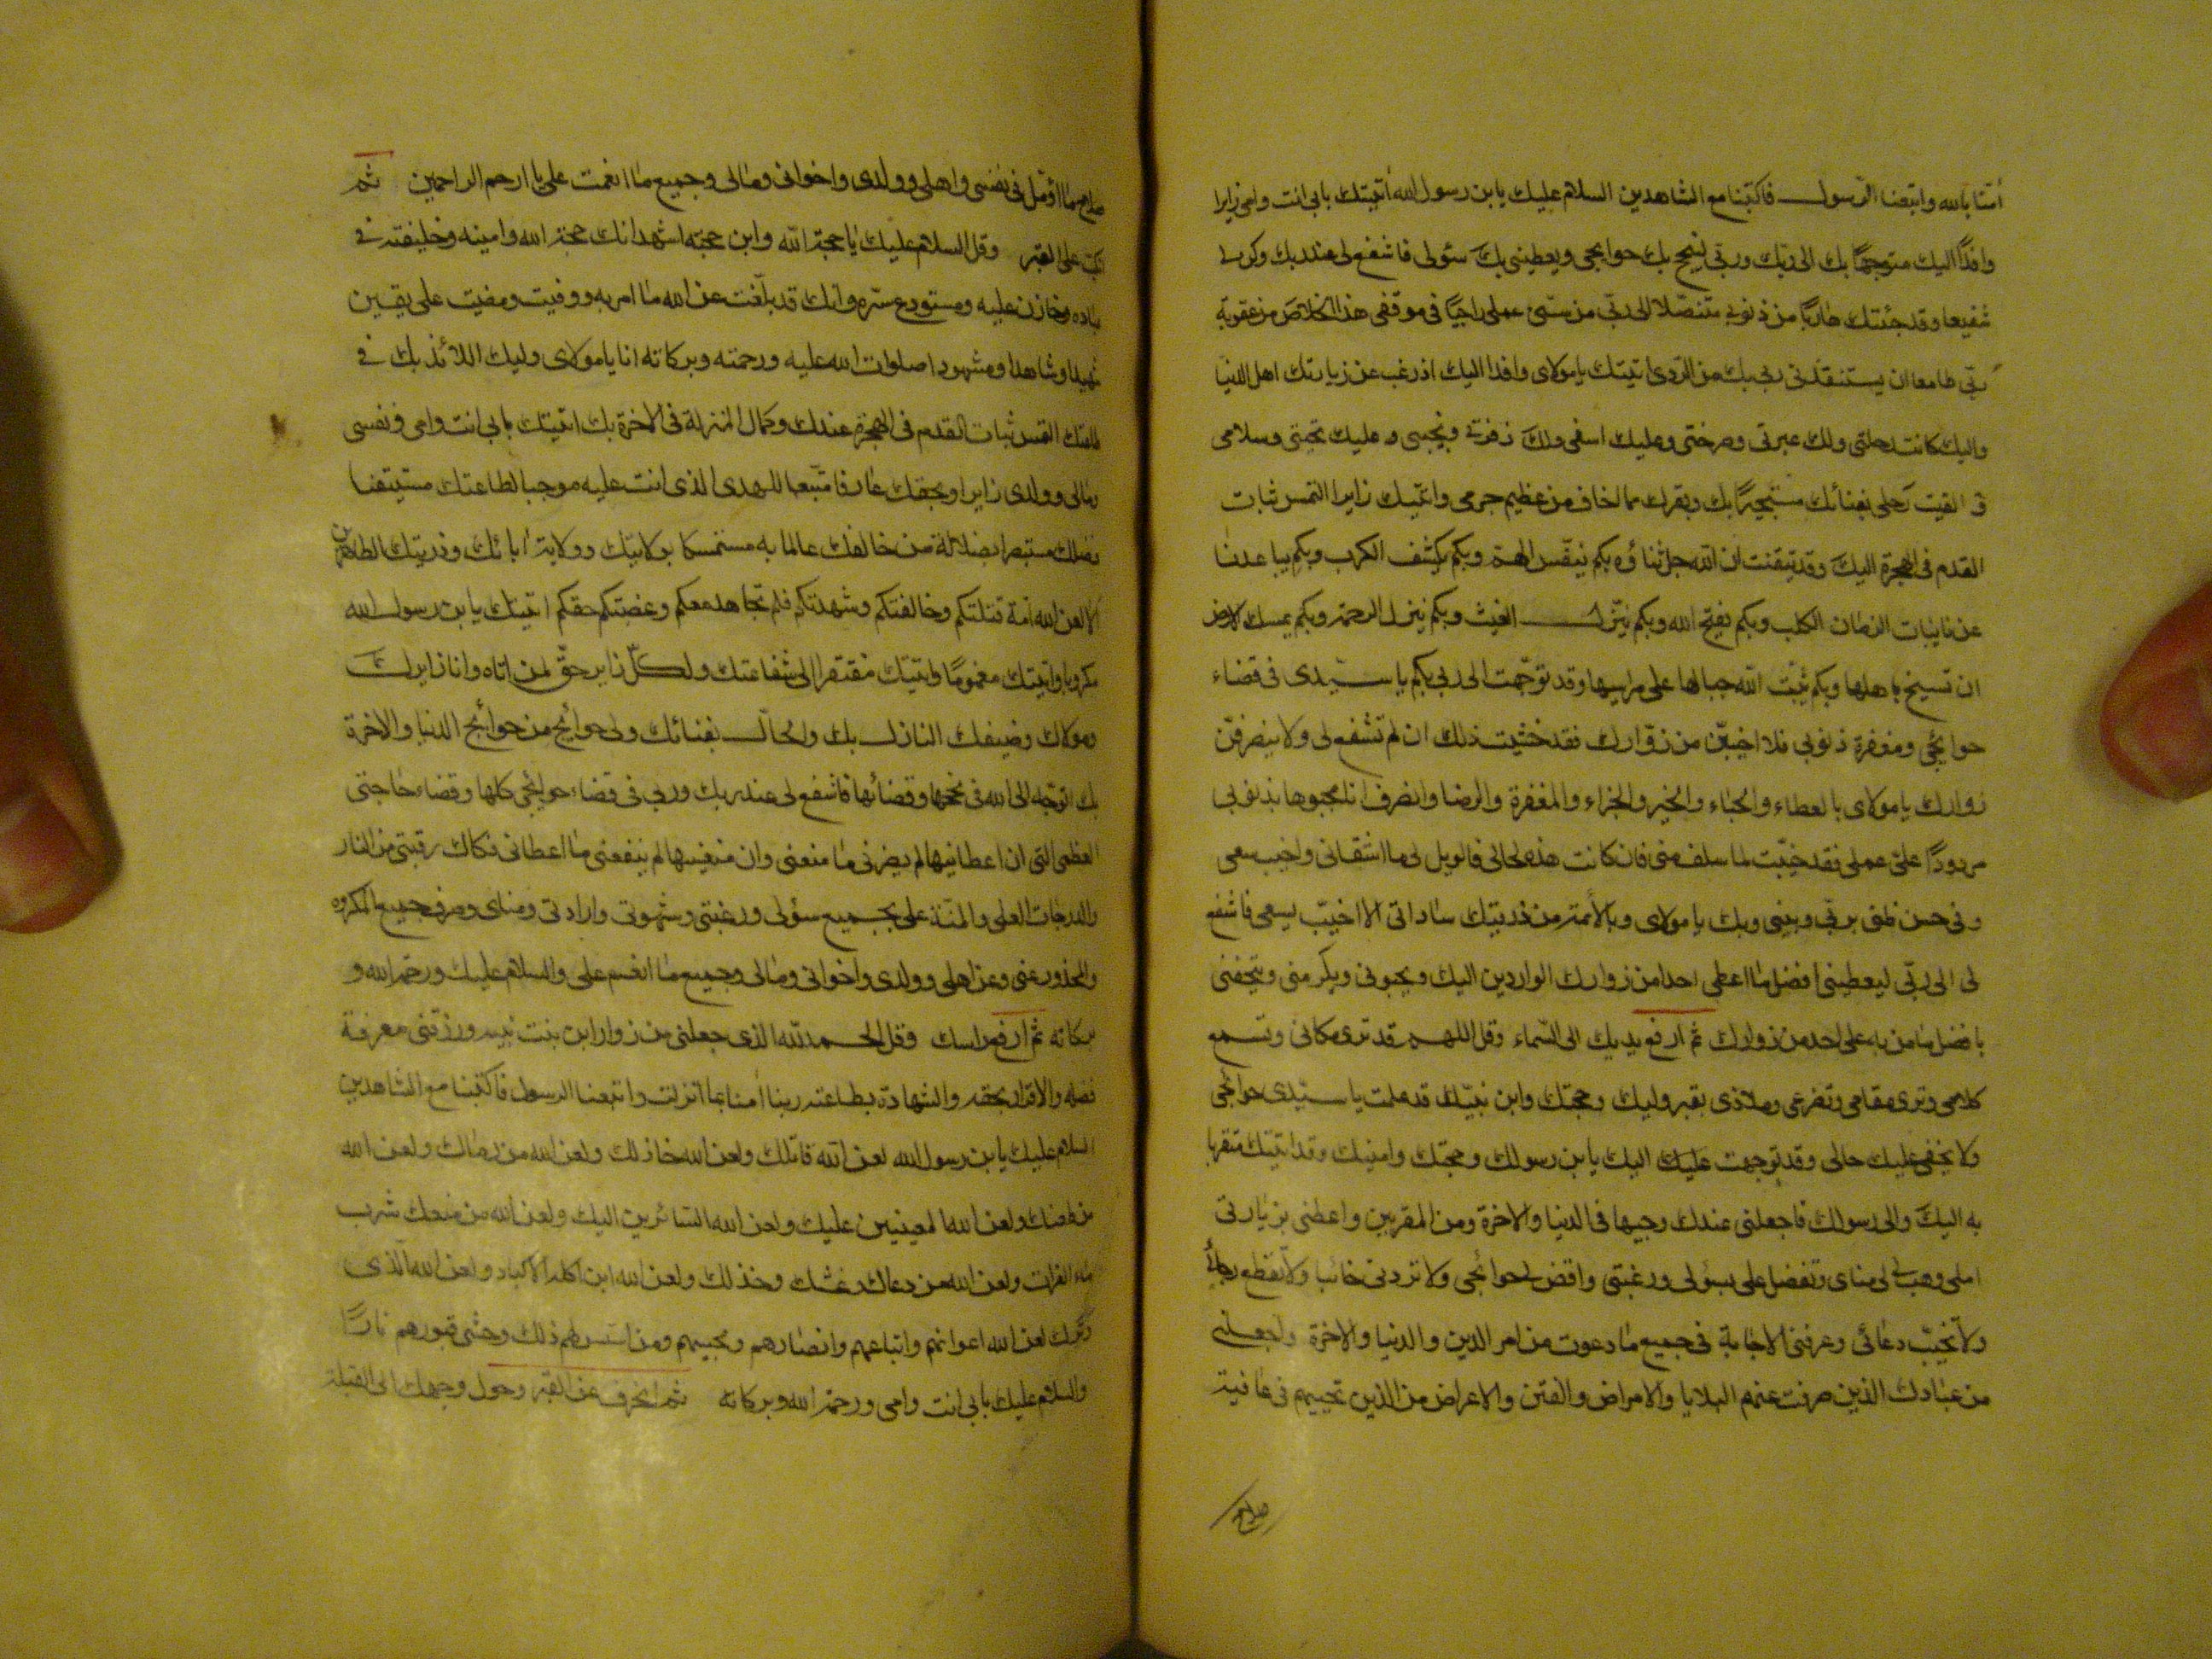 أمنا بالله واتبعنا الرسول فاكتبنا مع الشاهدين السلام عليك يابن رسول الله أتيتك بابى انت وامى زايرا
وافدًا اليك متوجهًا بك الى ربك وربى لينجح بك حوايجى ويعطينى بك سئولى فاشفع لى عند ربك وكن لى
شفيعا وقد جئتك هاربًا من ذنوبى متنصلا الى ربى من سئ عملى راجيًا فى موقفى هذا الخلاص من عقوبة
ربى طامعا ان يستنقذنى ربى بك من الردى اتيتك يا مولاى وافدا اليك اذ رغب عن زيارتك اهل الدنيا
واليك كانت رحلتى ولك عبرتى وصرختى وعليك اسفى ولك زفرتى ونحيبى وعليك تحيتى وسلامى
القيت رحلى بفنائك مستجيرًا بك وبقبرك مما اخاف من عظيم جرمى واتيتك زايرا التمس ثبات
القدم فى الهجرة اليك وقد تيقنت ان الله جل ثناؤه بكم ينفس الهم وبكم يكشف الكرب وبكم يباعدنا
عن نايبات الزمان الكلب وبكم يفتح الله وبكم ينزل الغيث وبكم ينزل الرحمة وبكم يمسك الارض
ان تسيخ باهلها وبكم يثبت الله جبالها على مراسيها وقد توجهت الى ربى بكم يا سيدى فى قضاء
حوايجى ومغفرة ذنوبى فلا اخيبن من زوارك فقد خشيت ذلك ان لم تشفع لى ولا ينصرفن
زوارك يا مولاى بالعطاء والحباء والخير والجزاء والمغفرة والرضا وانصرف انا مجبوها بذنوبى
مردودًا على عملى فقد خيبت لما سلف منى فان كانت هذه حالى فالويل لى ما اشقانى واخيب سعى
وفى حسن ظنى بربى وبنبى وبك يا مولاى وبالأئمة من ذريتك ساداتى الا اخيب يسعى فاشفع
لى الى ربى ليعطينى افضل ما اعطى احدا من زوارك الواردين اليك ويحبونى ويكرمنى ويتحفنى
بافضل ما من به على احد من زوارك ثم ارفع يديك الى السماء وقل اللهم قد ترى مكانى وتسمع
كلامى وترى مقامى وتضرعى وملاذى بقبر وليك وحجتك وابن نبيك قد علمت يا سيدى حوائجى
ولا يخفى عليك حالى وقد توجهت عليك اليك يابن رسولك وحجتك وامينك وقد اتيتك متقربا
به اليك والى رسولك فاجعلنى عندك وجيها فى الدنيا والاخرة ومن المقربين واعطنى بزيارتى
املى وهب لى مناى وتفضل على بسئولى ورغبتى واقض لى حوائجى ولا تردنى خائبا ولا تقطع رجائى
ولا تخيب دعائى وعرفنى الاجابة فى جميع ما دعوت من امر الدين والدنيا والاخرة واجعلنى
من عبادك الذين صرفت عنهم البلايا والامراض والفتن والاعراض من الذين تحييهم فى عافية
اؤمل فى نفسى واهلى وولدى واخوانى ومالى وجميع ما انعمت على يا ارحم الراحمين ثم
على القبر وقل السلام عليك يا حجة الله وابن حجته اشهد انك حجة الله وامينه وخليفته فى
وخازن علمه ومستودع سره وانك قد بلغت عن الله ما امر به ووفيت ومضيت على يقين
شهيدا وشاهدا ومشهودا صلوات الله عليه ورحمته وبركاته انا يا مولاى وليك اللائذ بك فى
طاعتك التمس ثبات القدم فى الهجرة عندك وكمال المنزلة فى الاخرة بك اتيتك بابى انت وامى ونفسى
ومالى وولدى زايرا وبحقك عارفا متبعا للهدى الذى انت عليه موجبا لطاعتك مستيقنا
فضلك مستبصرا بضلالة من خالفك عالما به مستمسكا بولايتك وولاية ابائك وذريتك الطاهرين
الا لعن الله امة قتلتكم وخالفتكم وشهدتكم فلم تجاهد معكم وغصبتكم حقكم اتيتك يابن رسول الله
مكروبا واتيتك مغمومًا واتيتك مفتقرا الى شفاعتك ولكل زاير حق لمن اتاه وانا زايرك
ومولاك وضيفك النازل بك والحال بفنائك ولى حوايج من حوائج الدنيا والاخرة
بك اتوجه الى الله فى نجحها وقضائها فاشفع لى عند ربك وربى فى قضاء حوايجى كلها وقضاء حاجتى
العظمى التى ان اعطانيها لم يضرنى ما منعنى وان منعنيها لم ينفعنى ما اعطانى فكاك رقبتى من النار
والدرجات العلى والمنة على بجميع سؤلى ورغبتى وشهوتى وارادتى ومناى وصرف جميع المكروه
والمحذور عنى وعن اهلى وولدى واخوانى ومالى وجميع ما انعم على والسلام عليك ورحمة الله و
بركاته ثم ارفع راسك وقل الحمد لله الذى جعلنى من زوار ابن بنت نبيه ورزقنى معرفة
فضله والاقرار بحقه والشهادة بطاعته ربنا أمنا بما انزلت واتبعنا الرسول فاكتبنا مع الشاهدين
السلام عليك يابن رسول الله لعن الله قاتلك ولعن الله خاذلك ولعن الله من رماك ولعن الله
من طعنك ولعن الله المعينين عليك ولعن الله السائرين اليك ولعن الله من منعك شرب
ماء الفرات ولعن الله من دعاك وغشك وخذلك ولعن الله ابن اكلة الاكباد ولعن الله الذى
وترك لعن الله اعوانهم واتباعهم وانصارهم ومحبيهم ومن اسس لهم ذلك وحشى قبورهم نارًا
والسلام عليك بابى انت وامى ورحمة الله وبركاته ثم انحرف عن القبر وحول وجهك الى القبلة